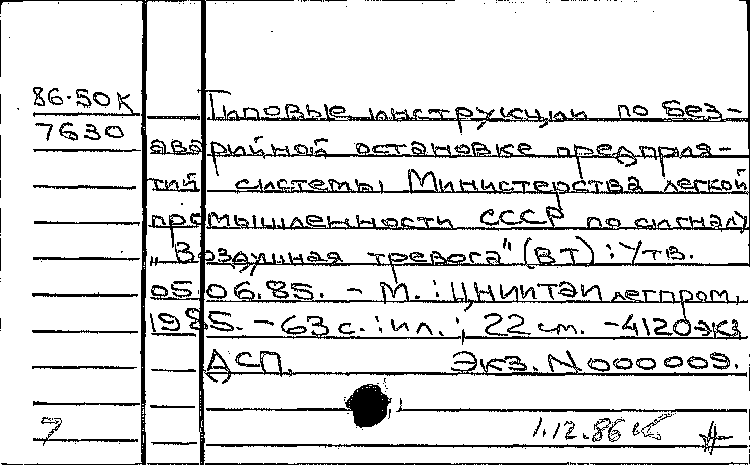 86-50К
7630
Типовые инструкции по без-
аварийной остановке предприя-
тий системы Министерства легкой
промышленности СССР по сигналу
„Воздушная тревога" (ВТ): Утв.
05.06.85. - М.: ЦНИИТЭИлегпром,
1985. - 63 с.: ил.; 22 см. - 4120 экз
ДСП. Экз. N 000009.
7 1.12.86